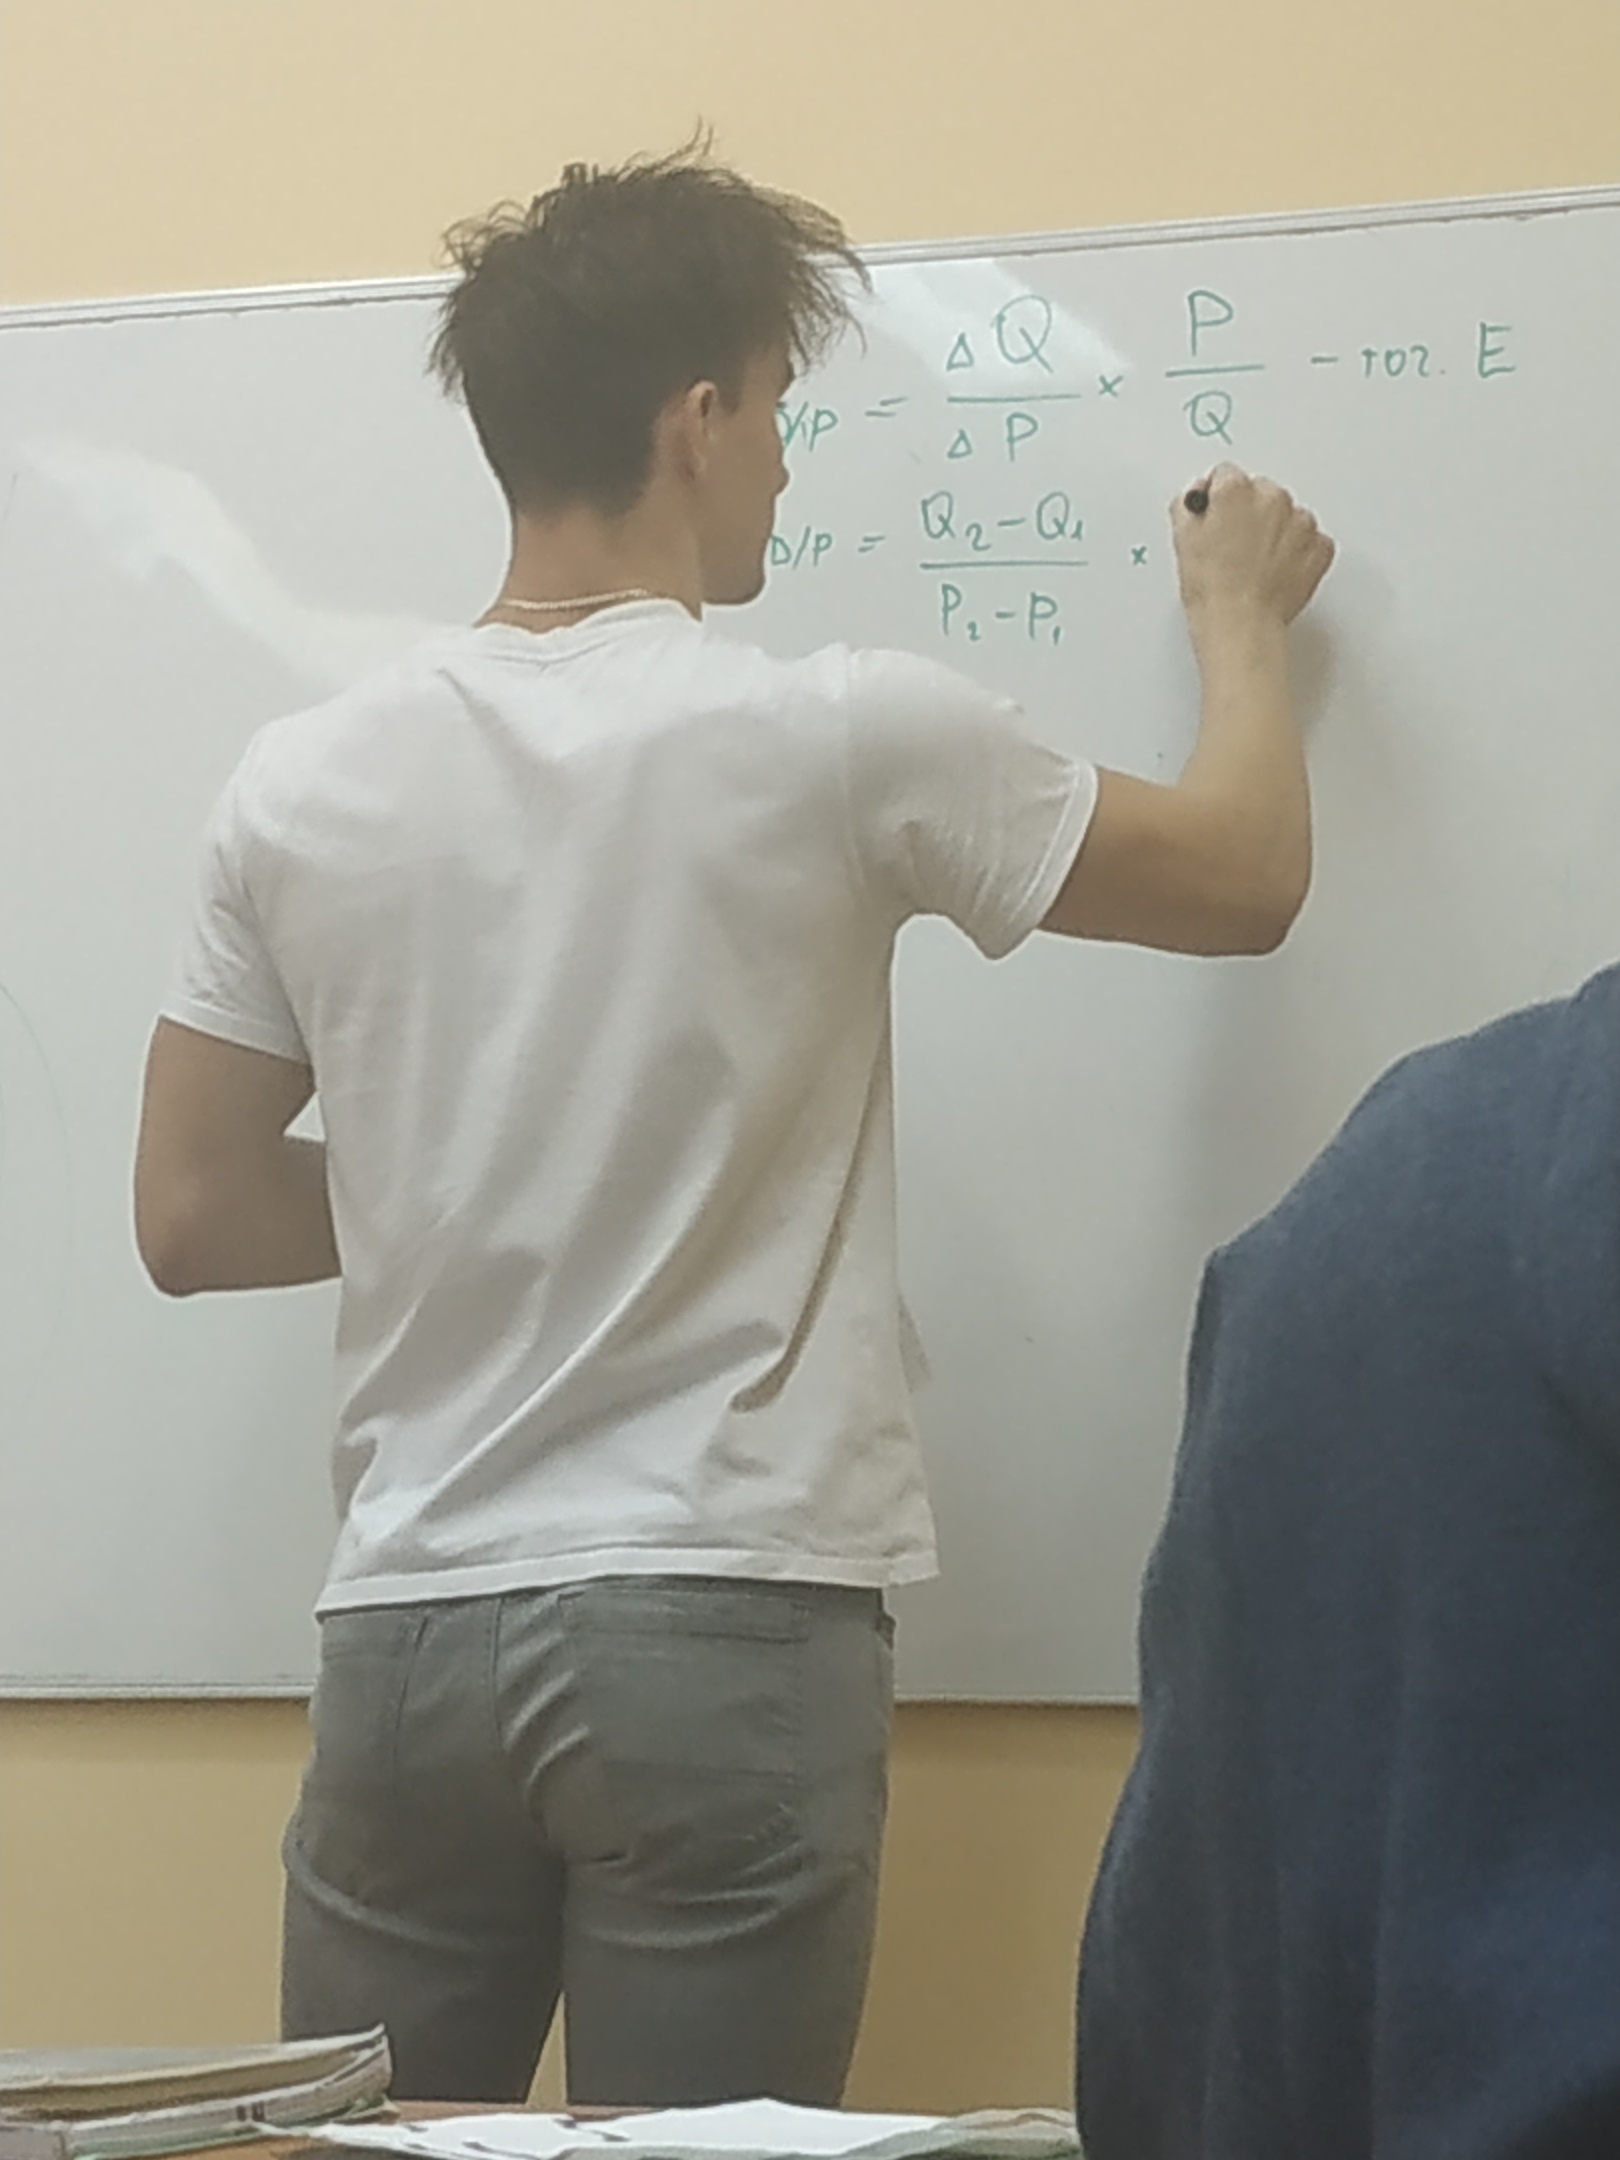 D/P = ΔQ/ΔP × P/Q - точ. E
D/P = Q₂-Q₁/P₂-P₁ ×